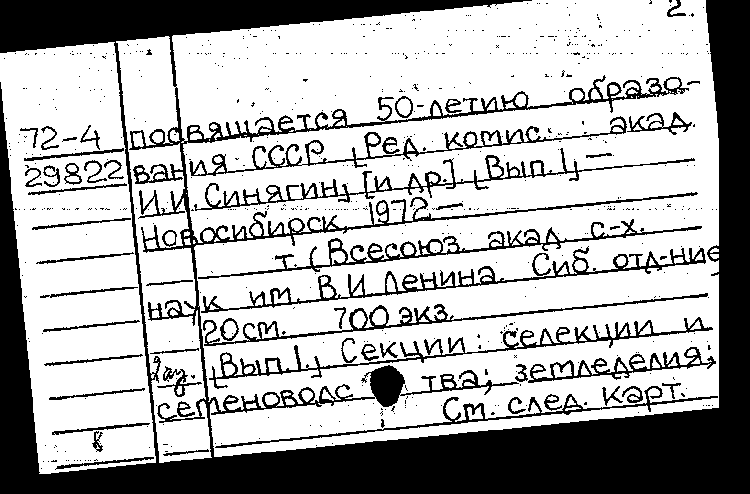 2.
72-4 посвящается 50-летию образо-
29822 вания СССР. [Ред. комис.: акад.
И.И. Синягин] [и др.]. [Вып. 1] —
Новосибирск, 1972 —
т. (Всесоюз. акад с-х.
наук им. В.И Ленина. Сиб. отд-ние
20см. 700 экз.
[Вып. 1.] Секции: селекции и
семеноводства; земледелия;
См. след. карт.
8